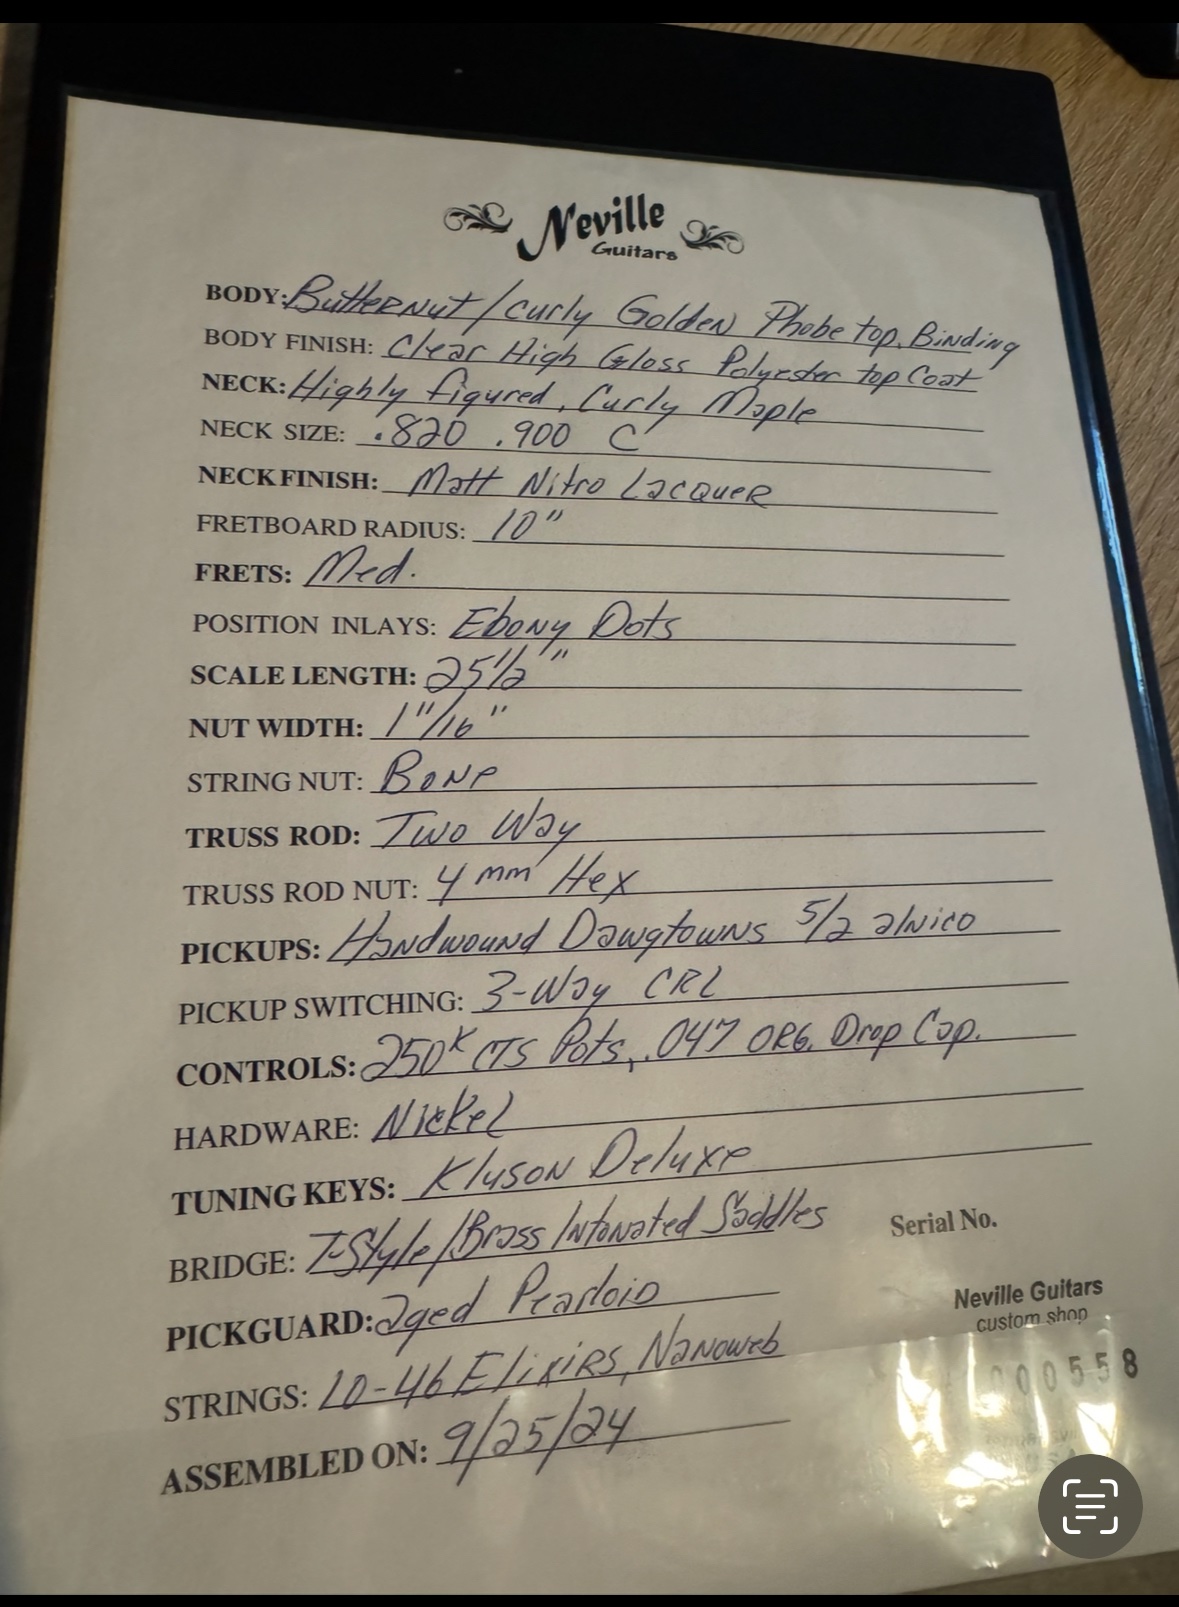 Neville
Guitars
BODY: Butternut/curly Golden Phobe top, Binding
BODY FINISH: Clear High Gloss Polyester top Coat
NECK: Highly figured, Curly Maple
NECK SIZE: .820 .900 C
NECK FINISH: Matt Nitro Lacquer
FRETBOARD RADIUS: 10"
FRETS: Med.
POSITION INLAYS: Ebony Dots
SCALE LENGTH: 25 1/2"
NUT WIDTH: 1 11/16"
STRING NUT: Bone
TRUSS ROD: Two Way
TRUSS ROD NUT: 4 mm Hex
PICKUPS: Handwound Dawgtowns 5/2 alnico
PICKUP SWITCHING: 3-Way CRL
CONTROLS: 250K CTS Pots, .047 ORG. Drop Cap.
HARDWARE: Nickel
TUNING KEYS: Kluson Deluxe
BRIDGE: T-Style/Brass Intonated Saddles
Serial No.
PICKGUARD: aged Pearloid
Neville Guitars
custom shop
STRINGS: 10-46 Elixirs, Nanoweb
000558
ASSEMBLED ON: 9/25/24